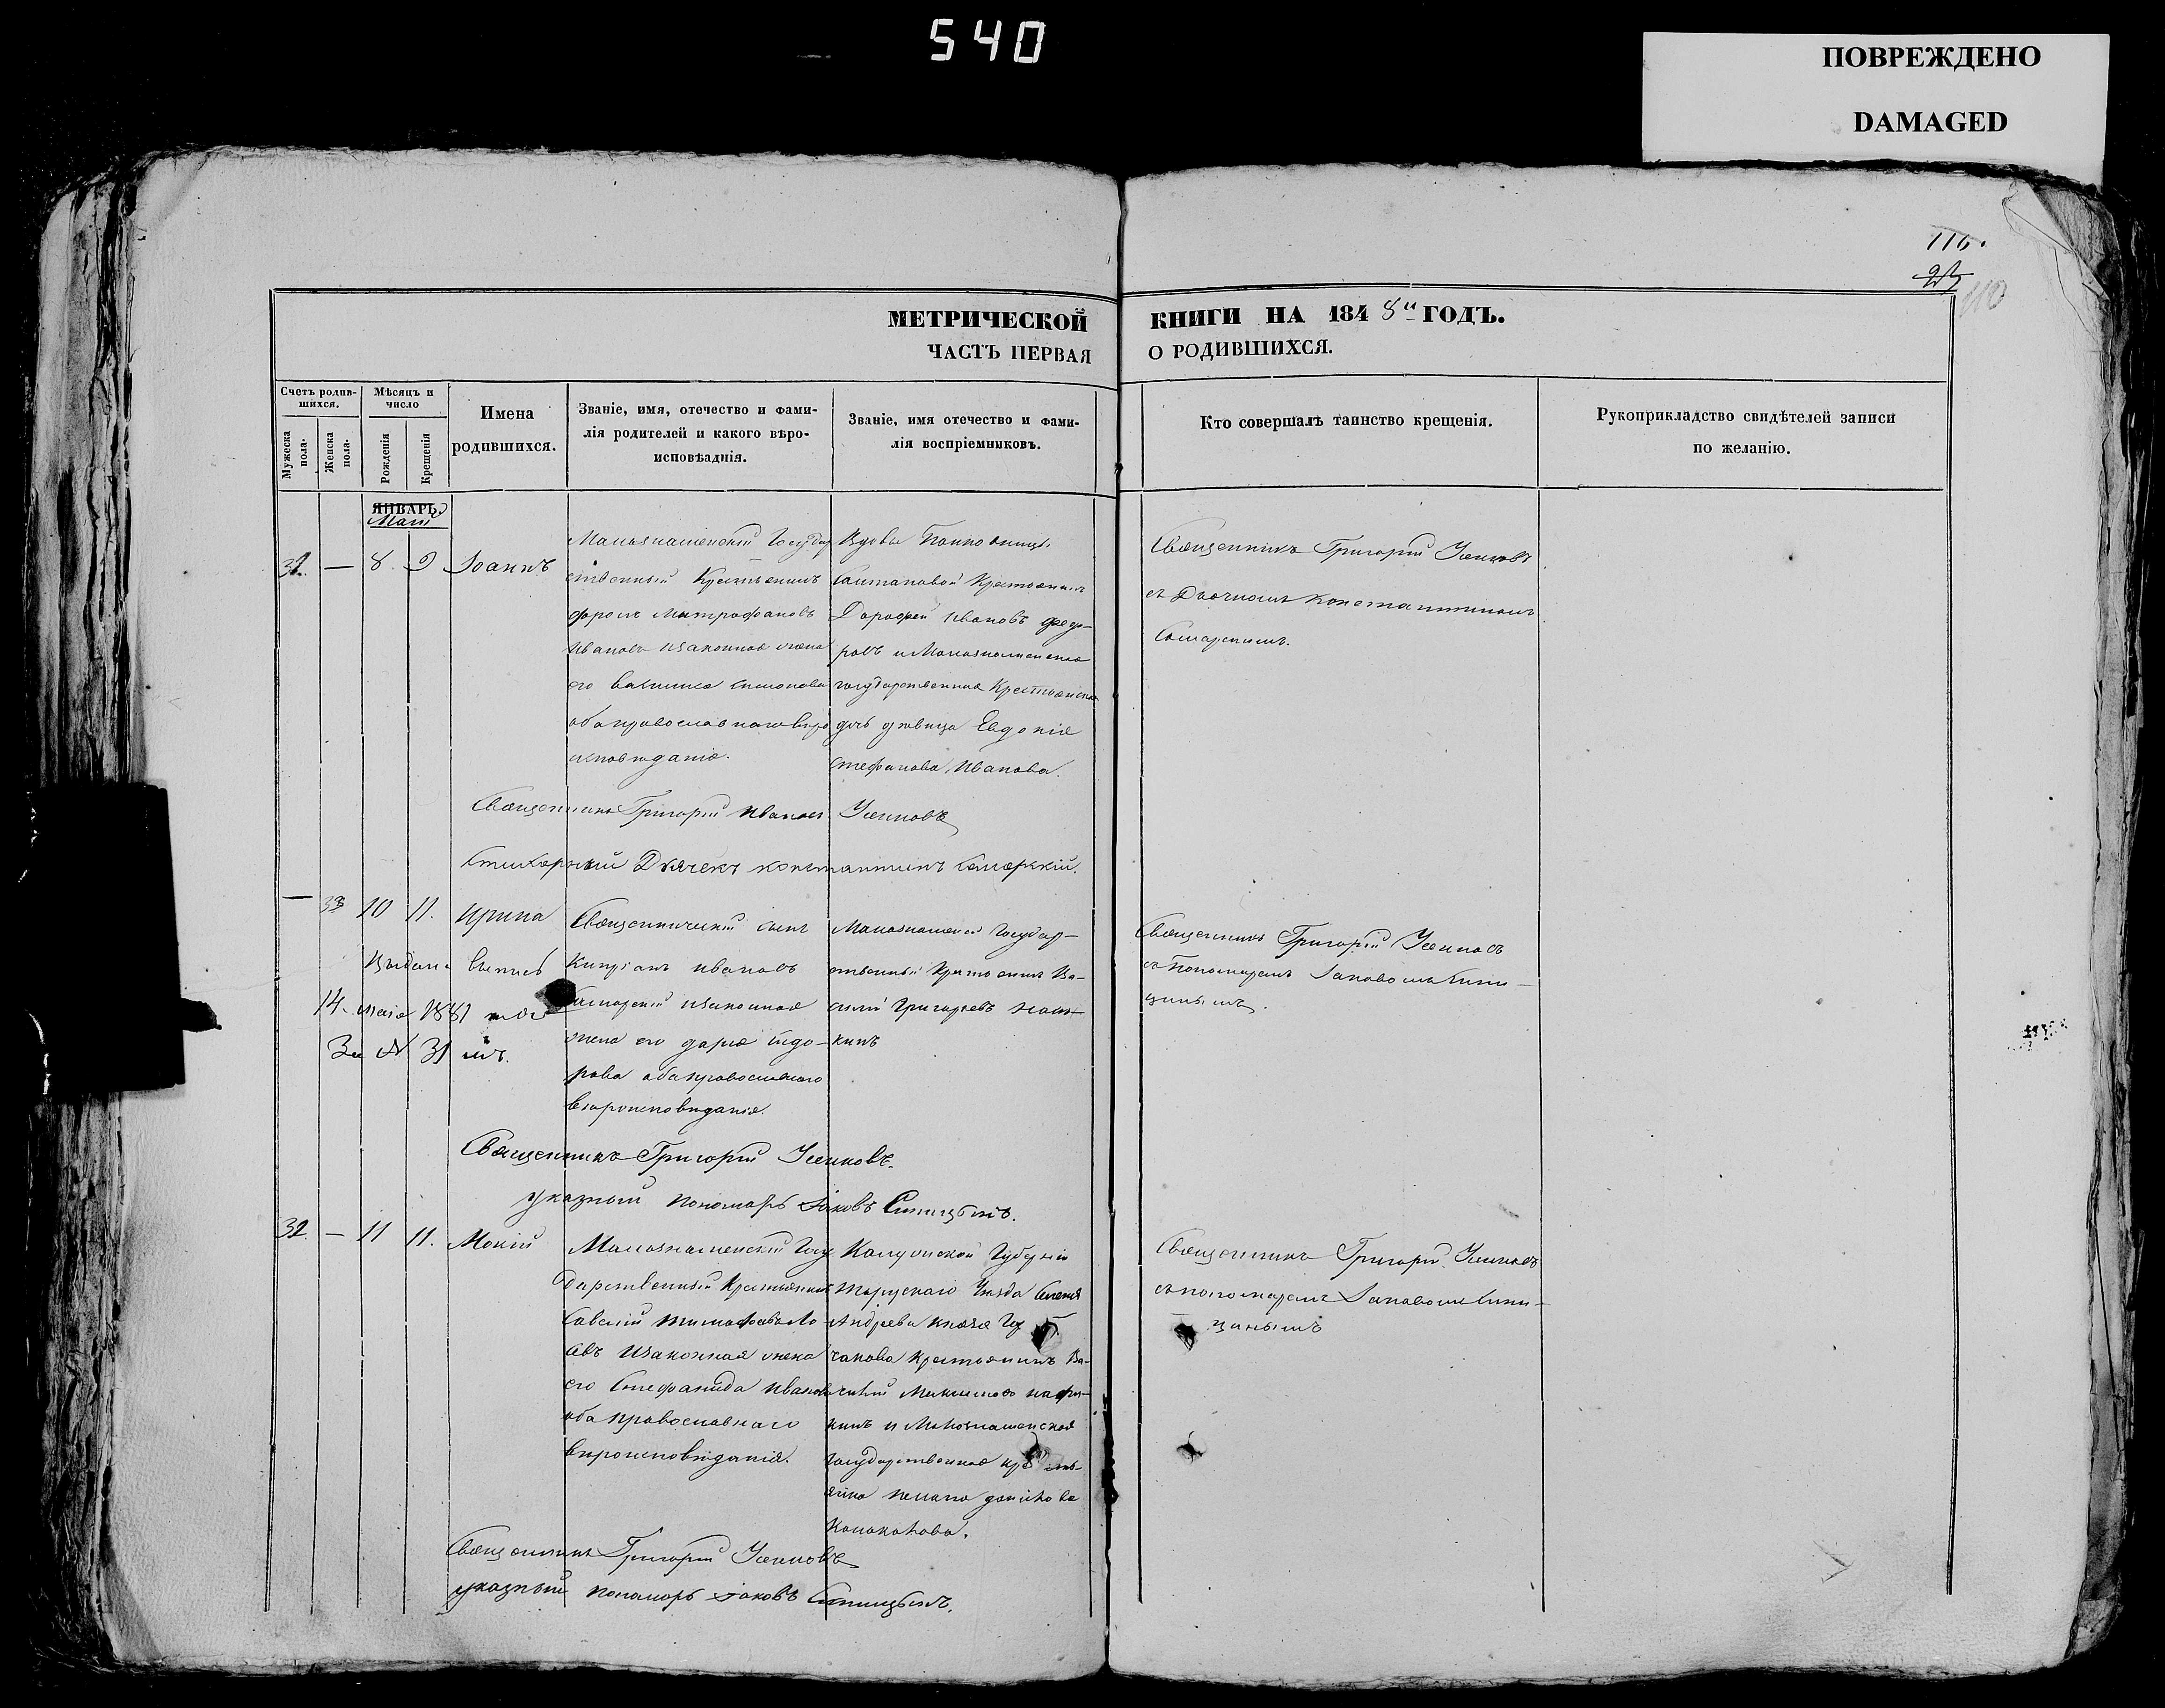 540
ПОВРЕЖДЕНО
DAMAGED
116.
110
МЕТРИЧЕСКОЙ КНИГИ НА 1848й ГОДЪ.
ЧАСТЬ ПЕРВАЯ О РОДИВШИХСЯ.
Счетъ родив-
шихся.
Мужеска пола.
Женска пола.
Мѣсяцъ и число
Рожденія
Крещенія
Имена
родившихся.
Званіе, имя, отечество и фами-
лія родителей и какого вѣро-
исповѣаднія.
Званіе, имя отечество и фами-
лія воспріемниковъ.
Кто совершалъ таинство крещенія.
Рукоприкладство свидѣтелей записи
по желанію.
ЯНВАРЬ.
Маій
31. — 8. 9 Іоаннъ
Малознаменскій Государ
ственный Крестьянинъ
Митрофановъ
Ивановъ изаконная жена
его Симонова
оба православнаго вѣро
исповѣданія.
Вдовы
Крестьянинъ
Дорофей Ивановъ Федо-
ровъ и Малознаменская
государственная Крестьянская
дочь дѣвица Евдокія
Стефанова Иванова.
Священникъ Григорій Усенковъ
съ Дьячкомъ Константиномъ
Самарскимъ.
Священникъ Григорій Ивановъ Усенковъ
Стихарный Дьячекъ Константинъ Самарскій.
— 33 10 11. Ирина
Выдана выпись
14. маія 1881 года
За № 31 мъ.
Священническій сынъ
Кипріанъ Ивановъ
Самарскій изаконная
жена его Дарія Сидо-
рова оба православнаго
вѣроисповѣданія.
Малознаменскій Государ-
ственный Крестьянинъ Ва-
силій Григорьевъ
кинъ
Священникъ Григорій Усенковъ
съ Пономаремъ Іаковомъ Сини-
цинымъ.
Священникъ Григорій Усенковъ.
указный пономарь Іаковъ Синицынъ.
32. — 11 11. Мокій
Малознаменскій Госу
дарственный Крестьянинъ
Савелій Тимофѣевъ Ло-
евъ изаконная жена
его Стефанида Иванова
оба православнаго
вѣроисповѣданія.
Калужской Губерніи
Тарускаго Уѣзда
Андреева Князя
чакова Крестьянинъ Ва-
силій Максимовъ
кинъ и Малознаменская
государственная кресть-
янка
Священникъ Григорій Усенковъ
съ пономаремъ Іаковомъ Сини-
цинымъ
Священникъ Григорій Усенковъ
указный пономарь Іаковъ Синицынъ.